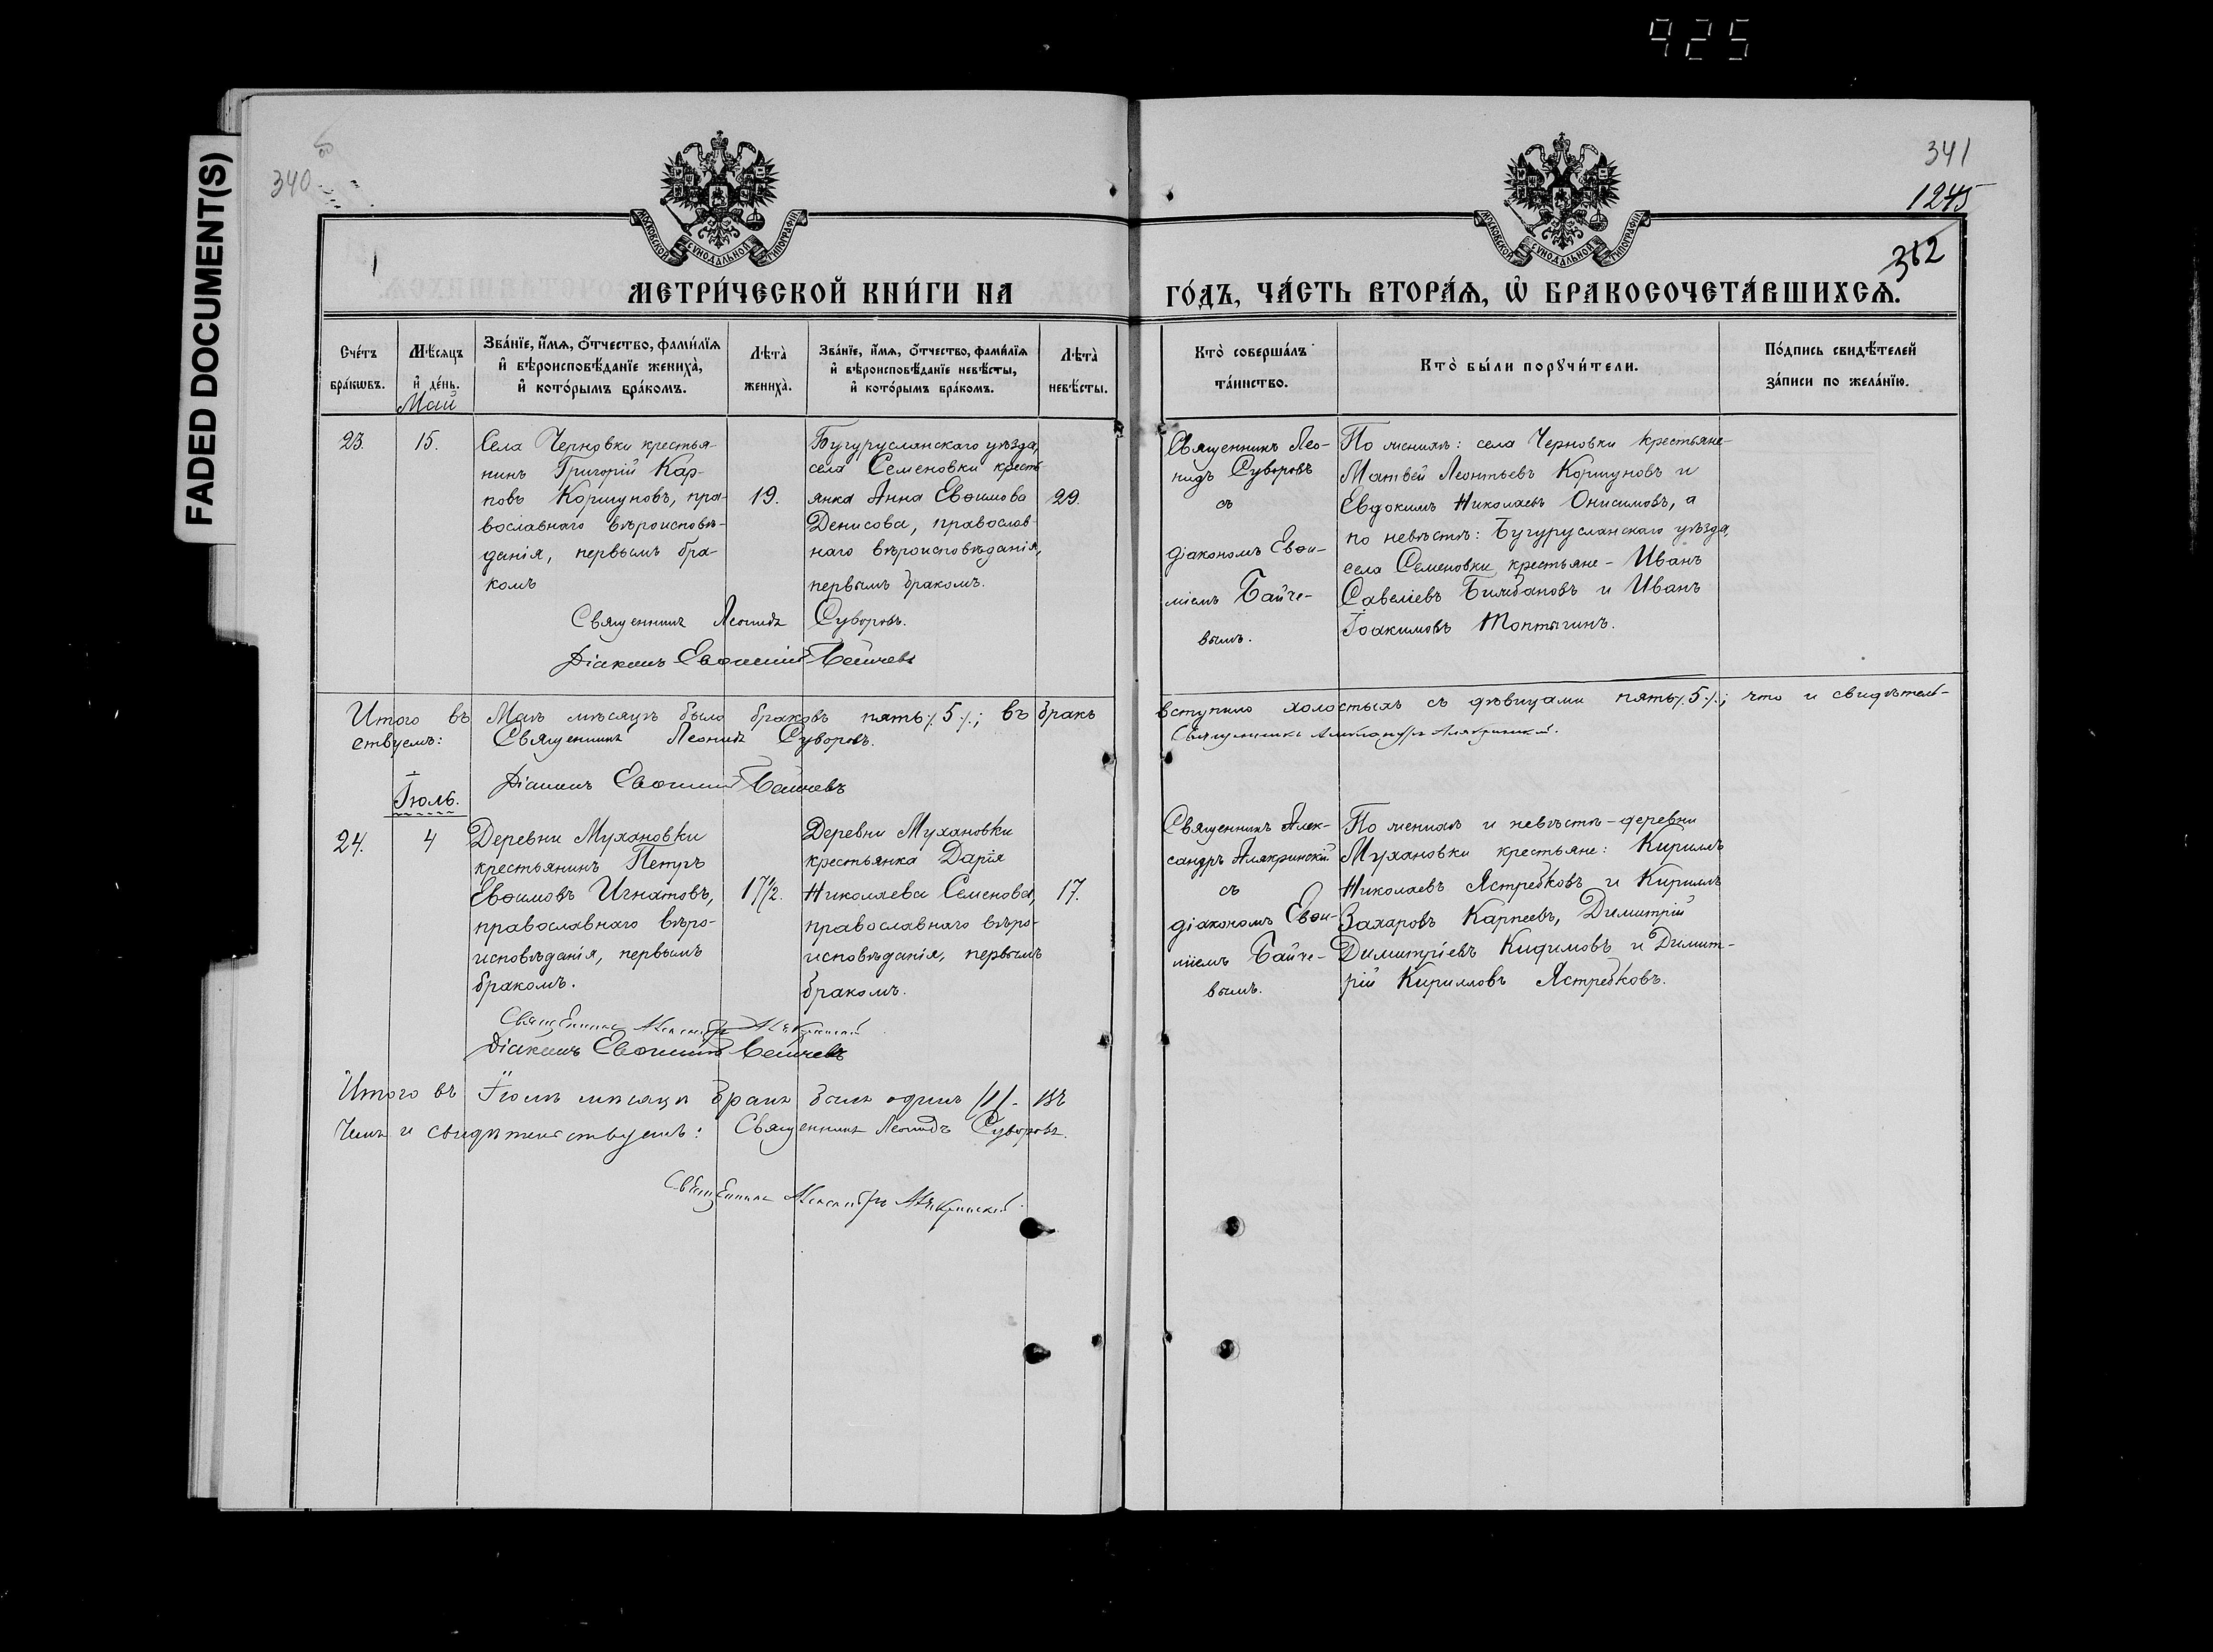 925
FADED DOCUMENT(S)
340
341
1245
362
1
МОСКОВСКОЙ СѴНОДАЛЬНОЙ ТИПОГРАФІИ
МОСКОВСКОЙ СѴНОДАЛЬНОЙ ТИПОГРАФІИ
МЕТРИ́ЧЕСКОЙ КНИ́ГИ НА
ГО́ДЪ, ЧА́СТЬ ВТОРА́Ѧ, Ѡ҆ БРАКОСОЧЕТА́ВШИХСѦ.
Сче́тъ
бра́кѡвъ.
Мѣ́сѧцъ
и҆ де́нь.
Зва́нїе, и҆́мѧ, ѻ҆́тчество, фами́лїѧ
и҆ вѣроисповѣ́данїе жениха̀,
и҆ кото́рымъ бра́комъ.
Лѣта̀
жениха̀.
Зва́нїе, и҆́мѧ, ѻ҆́тчество, фами́лїѧ
и҆ вѣроисповѣ́данїе невѣ́сты,
и҆ кото́рымъ бра́комъ.
Лѣта̀
невѣ́сты.
Кто̀ соверша́лъ
та́инство.
Кто̀ бы́ли порꙋчи́тели.
По́дпись свидѣ́телей
за́писи по жела́нїю.
Май
23.
15.
Села Черновки крестья-
нинъ Григорій Кар-
повъ Коршуновъ, пра-
вославнаго вѣроисповѣ-
данія, первымъ бра-
комъ
19.
Бугурусланскаго уѣзда,
села Семеновки кресть
янка Анна Евѳимова
Денисова, православ-
наго вѣроисповѣданія,
первымъ бракомъ.
29.
Священникъ Лео-
нидъ Суворовъ
съ
діакономъ Евѳи-
міемъ Байче-
вымъ.
По женихѣ: села Черновки крестьяне-
Матвей Леонтьевъ Коршуновъ и
Евдокимъ Николаевъ Онисимовъ, а
по невѣстѣ: Бугурусланскаго уѣзда,
села Семеновки крестьяне - Иванъ
Савеліевъ Бимбановъ и Иванъ
Іоакимовъ Топтыгинъ.
Священникъ Леонидъ Суворовъ.
Діаконъ Евѳимій Байчевъ
Итого въ Маѣ мѣсяцѣ было браковъ пять ⁒ 5 ⁒; въ бракъ
вступило холостыхъ съ дѣвицами пять ⁒ 5 ⁒; что и свидѣтель-
ствуемъ: Священникъ Леонидъ Суворовъ.
Священникъ Александръ Алякринскій.
Діаконъ Евѳимій Байчевъ
Іюль.
24.
4
Деревни Мухановки
крестьянинъ Петръ
Евѳимовъ Игнатовъ,
православнаго вѣро-
исповѣданія, первымъ
бракомъ.
17½.
Деревни Мухановки
крестьянка Дарія
Николаева Семенова,
православнаго вѣро-
исповѣданія, первымъ
бракомъ.
17.
Священникъ Алек-
сандръ Алякринскій
съ
діакономъ Евѳи-
міемъ Байче-
вымъ.
По женихѣ и невѣстѣ - деревни
Мухановки крестьяне: Кириллъ
Николаевъ Ястребковъ и Кириллъ
Захаровъ Карпеевъ, Димитрій
Димитріевъ Кифимовъ и Димит-
рій Кирилловъ Ястребковъ.
Священникъ Александръ Алякринскій
Діаконъ Евѳимій Байчевъ
Итого въ Іюлѣ мѣсяцѣ бракъ былъ одинъ /1/ - въ
чемъ и свидѣтельствуемъ: Священникъ Леонидъ Суворовъ.
Священникъ Александръ Алякринскій